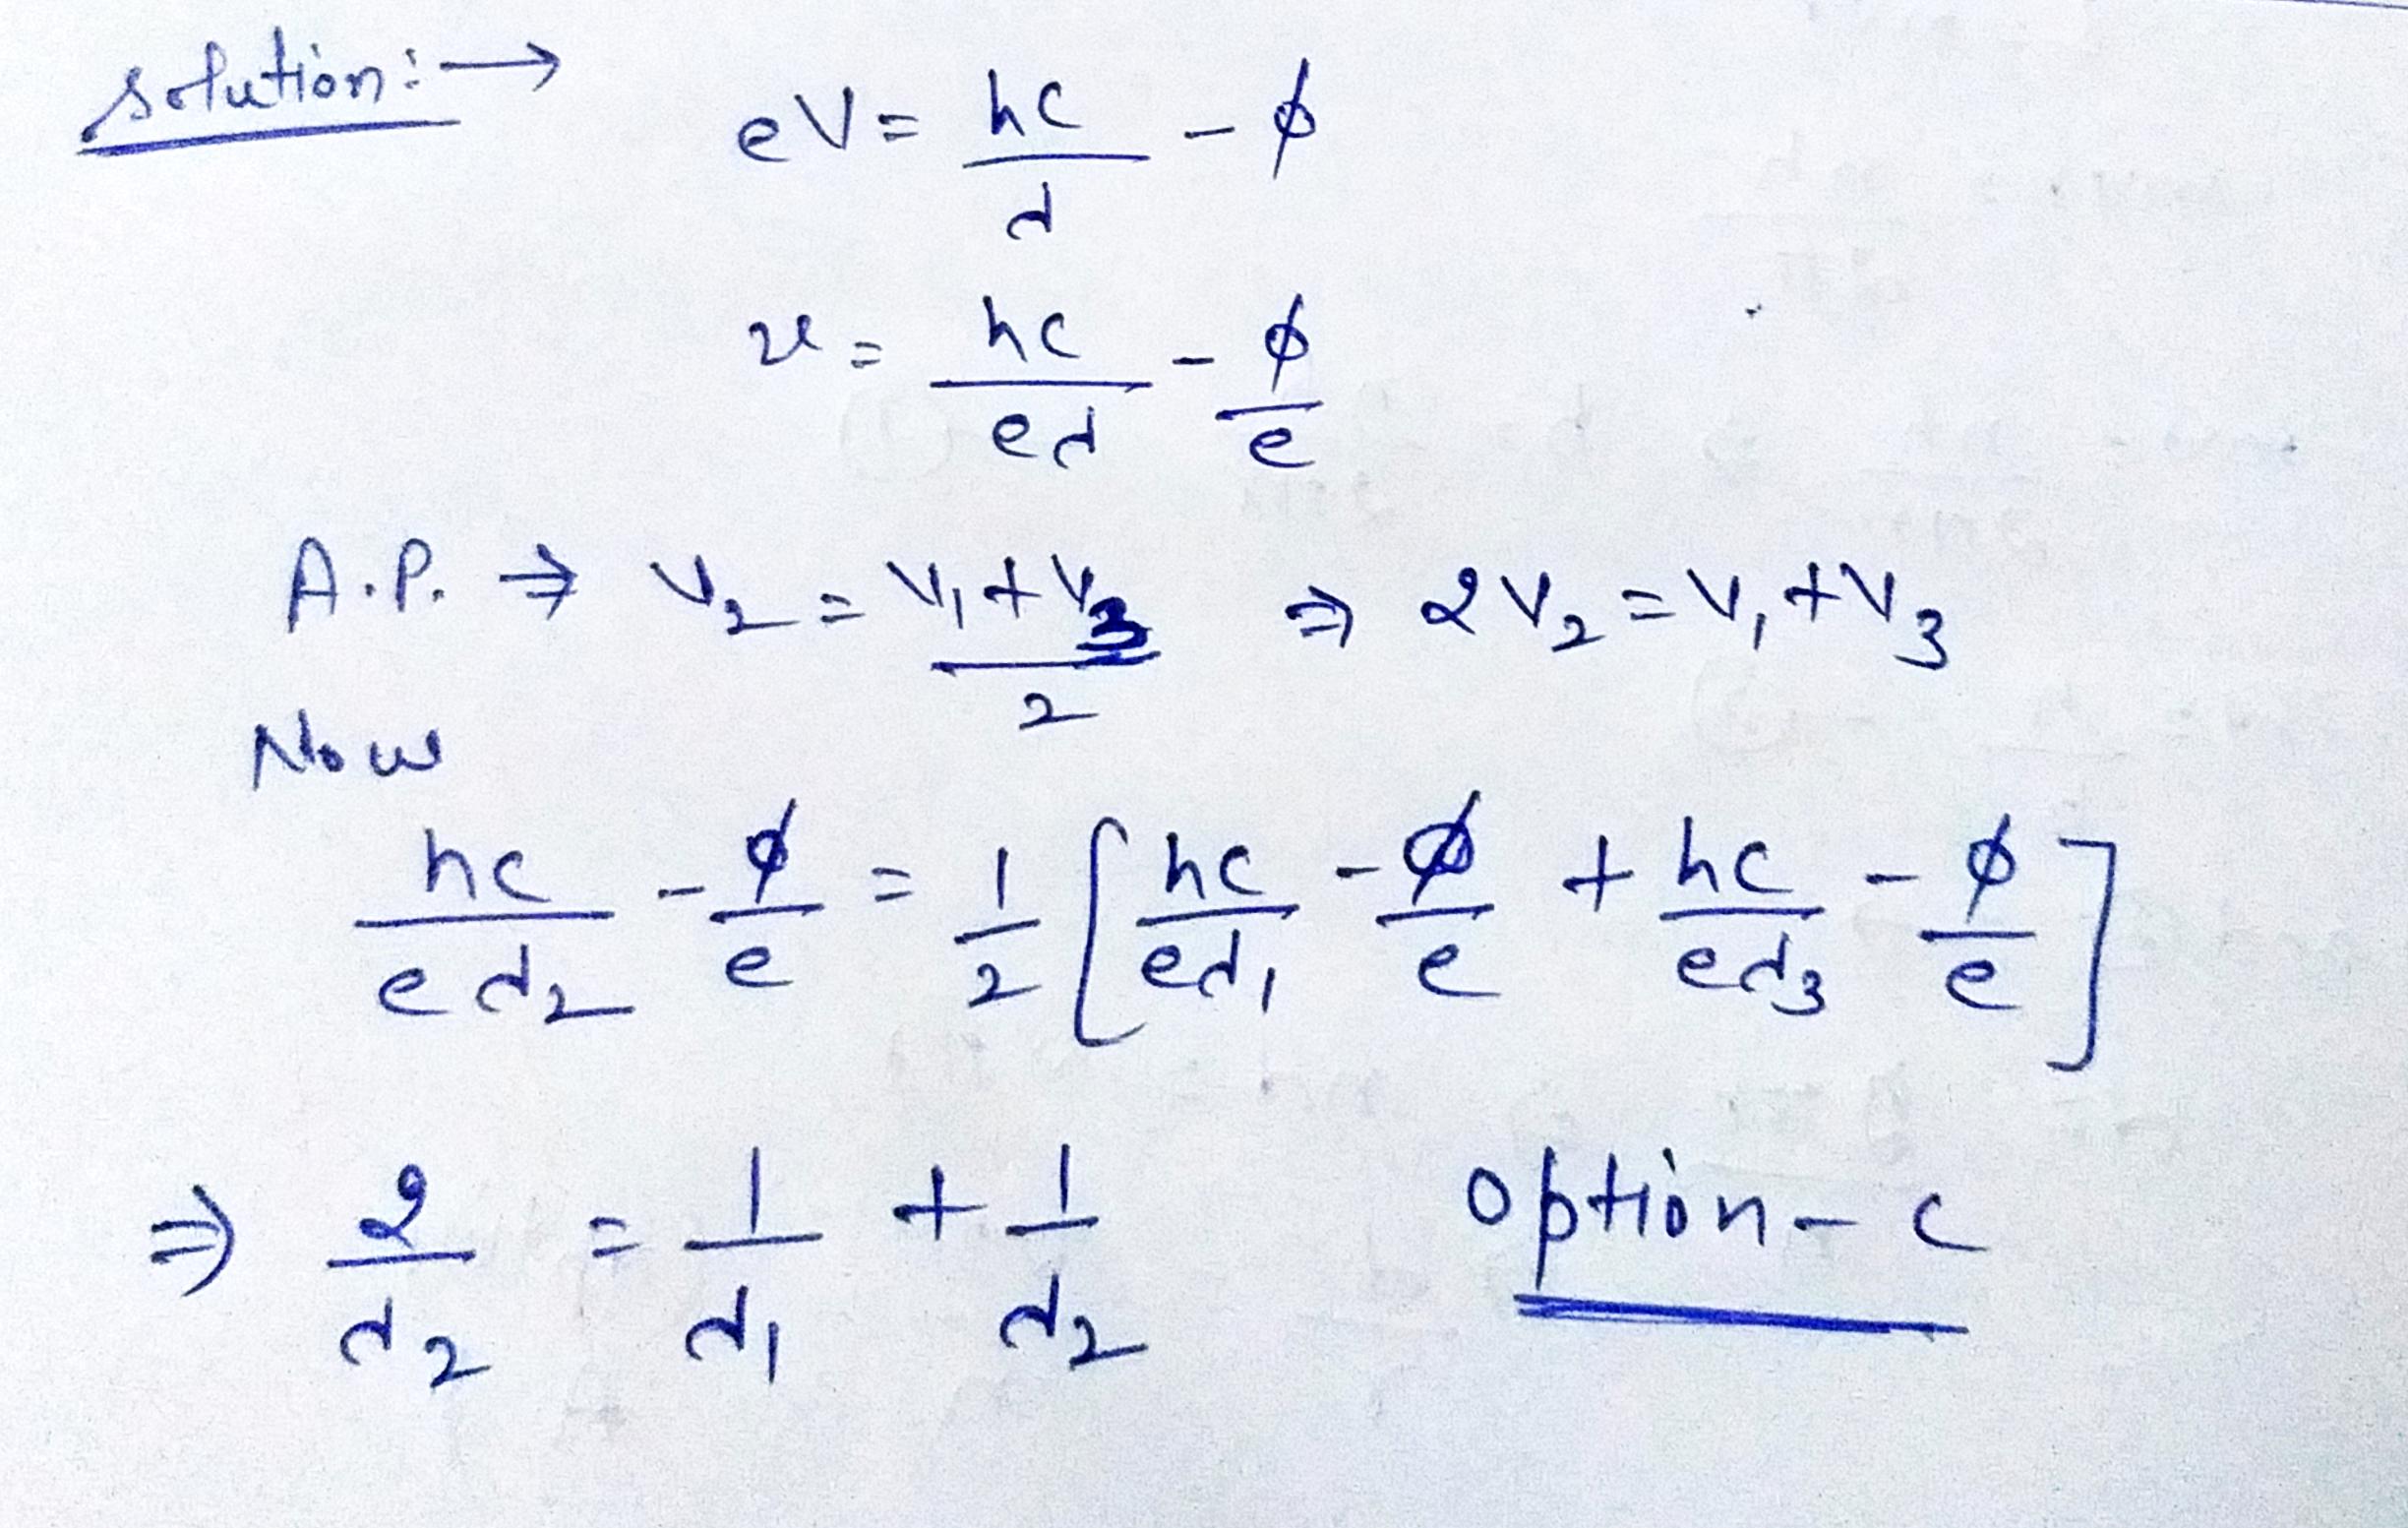 solution:→ eV = hc/λ - ϕ
v = hc/eλ - ϕ/e
A.P. ⇒ V₂ = V₁+V₃/2 ⇒ 2V₂ = V₁+V₃
Now
hc/eλ₂ - ϕ/e = 1/2 [hc/eλ₁ - ϕ/e + hc/eλ₃ - ϕ/e]
⇒ 2/λ₂ = 1/λ₁ + 1/λ₂ option - c